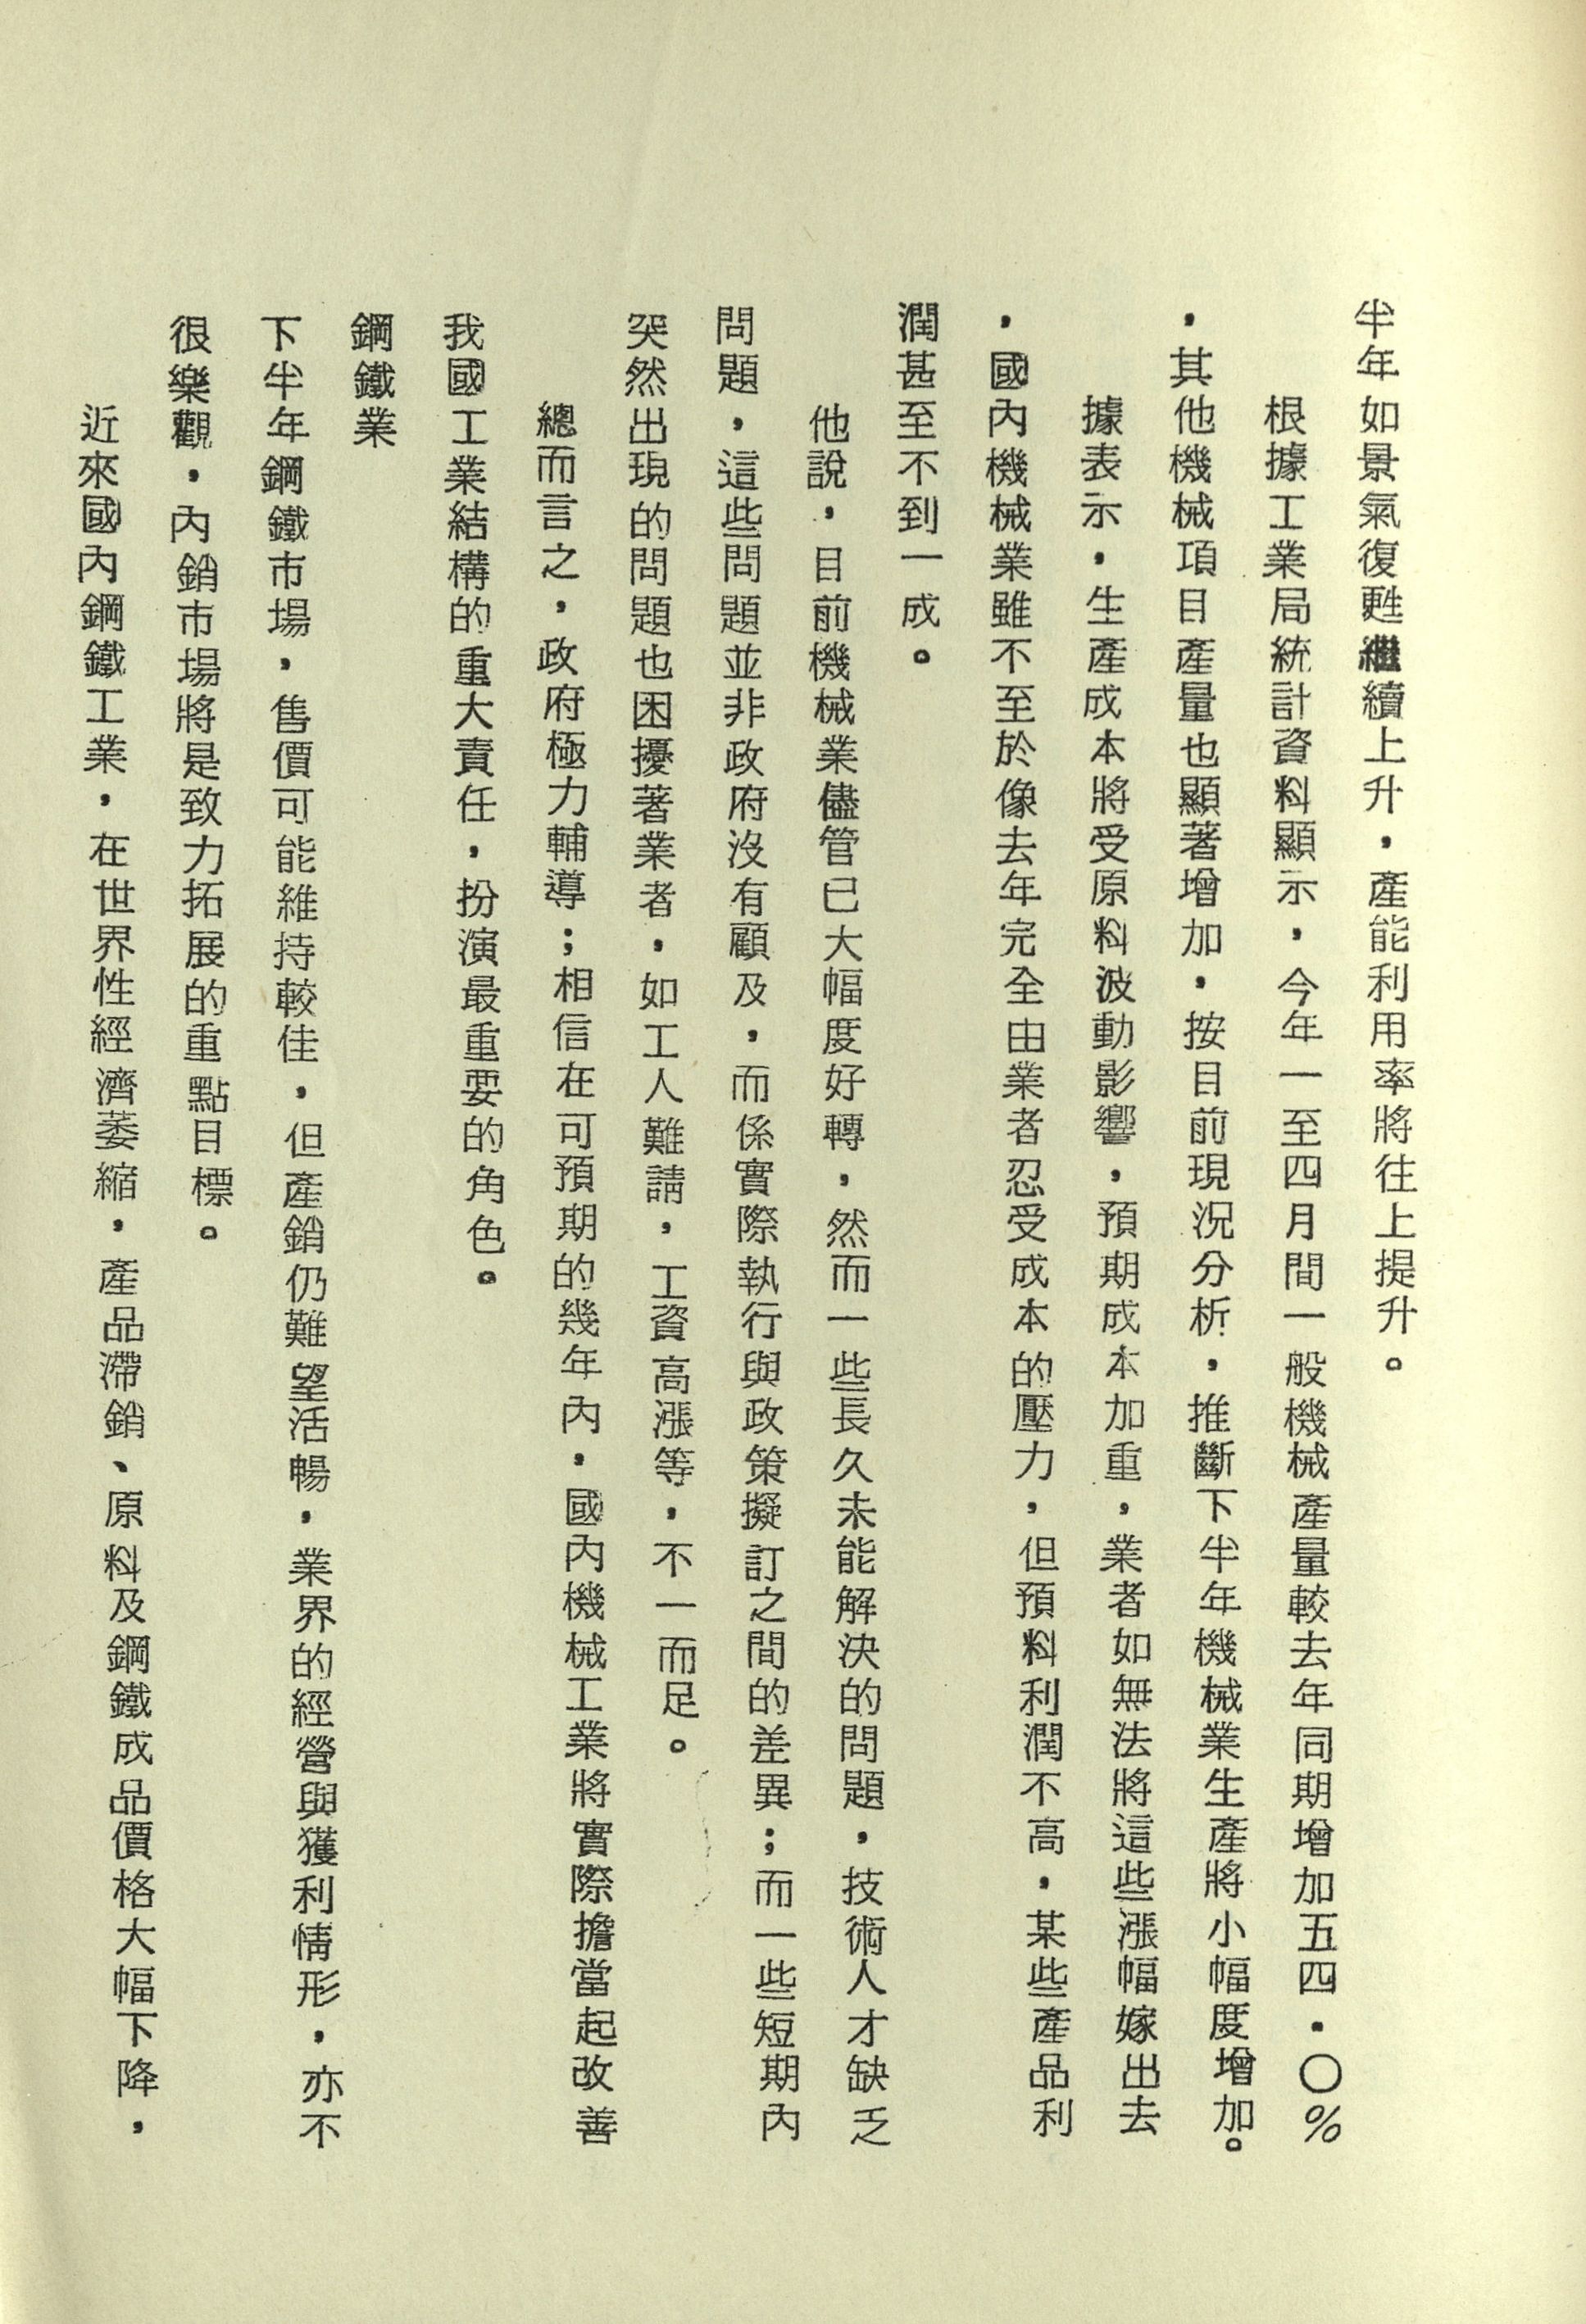 半年如景氣復甦繼續上升，產能利用率將往上提升。
根據工業局統計資料顯示，今年一至四月間一般機械產量較去年同期增加五四．〇％
，其他機械項目產量也顯著增加，按目前現況分析，推斷下半年機械業生產將小幅度增加。
據表示，生產成本將受原料波動影響，預期成本加重，業者如無法將這些漲幅嫁出去
，國內機械業雖不至於像去年完全由業者忍受成本的壓力，但預料利潤不高，某些產品利
潤甚至不到一成。
他說，目前機械業儘管已大幅度好轉，然而一些長久未能解決的問題，技術人才缺乏
問題，這些問題並非政府沒有顧及，而係實際執行與政策擬訂之間的差異；而一些短期內
突然出現的問題也困擾著業者，如工人難請，工資高漲等，不一而足。
總而言之，政府極力輔導；相信在可預期的幾年內，國內機械工業將實際擔當起改善
我國工業結構的重大責任，扮演最重要的角色。
鋼鐵業
下半年鋼鐵市場，售價可能維持較佳，但產銷仍難望活暢，業界的經營與獲利情形，亦不
很樂觀，內銷市場將是致力拓展的重點目標。
近來國內鋼鐵工業，在世界性經濟萎縮，產品滯銷、原料及鋼鐵成品價格大幅下降，